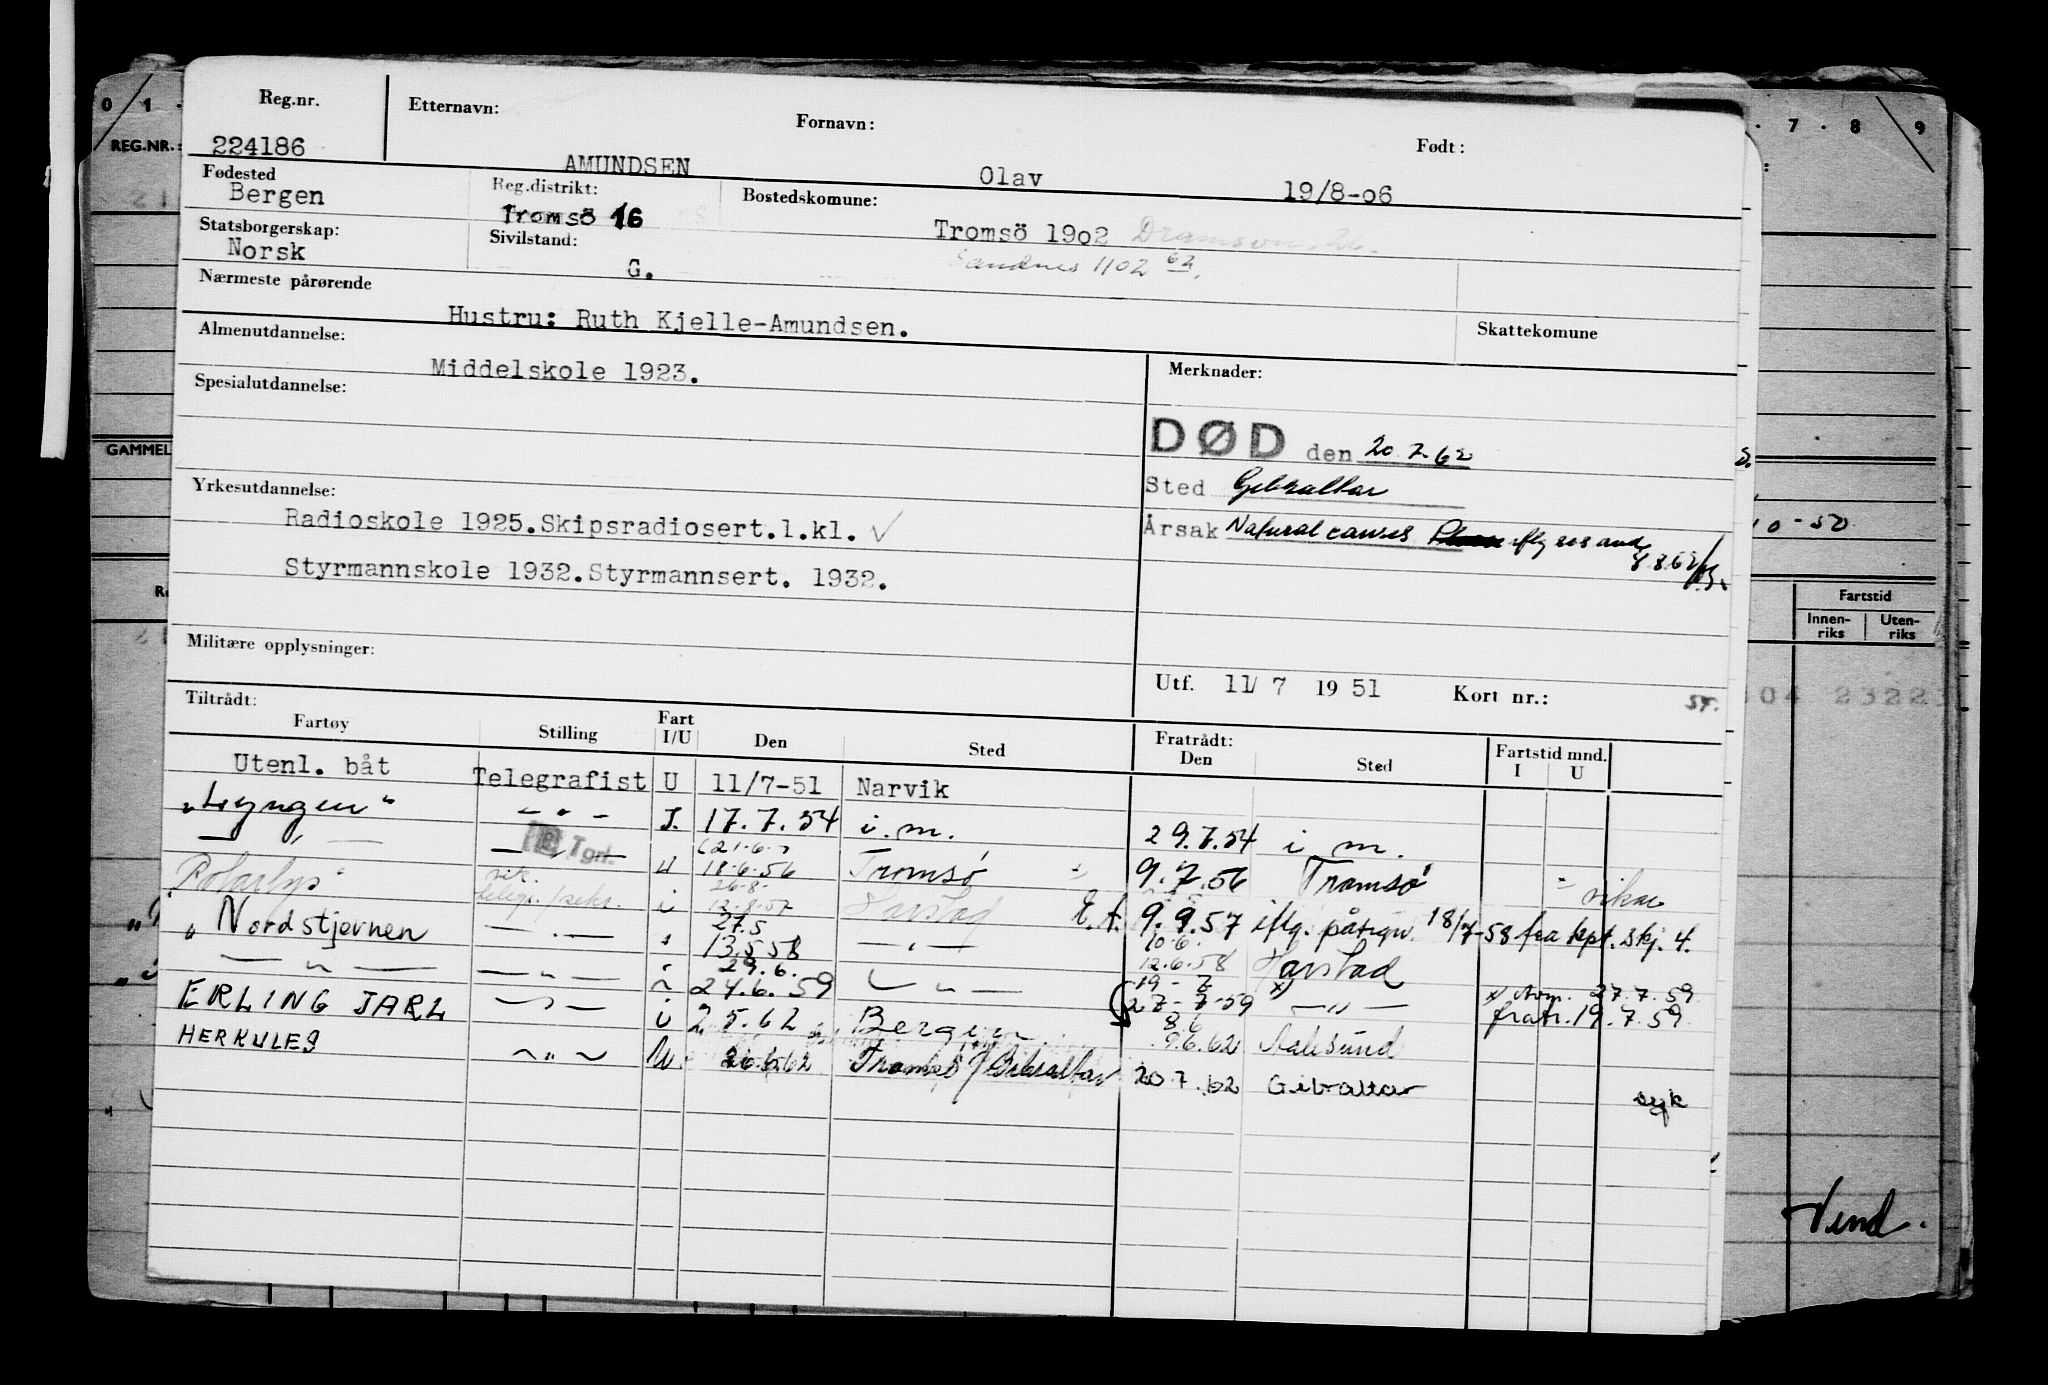 0 1 . 7 . 8 . 9
REG.NR.:
Reg.nr. Etternavn: Fornavn: Født:
224186 AMUNDSEN Olav 19/8-06
Fødested Reg.distrikt: Bostedskomune:
Bergen Tromsö 16 Tromsö 1902
Statsborgerskap: Sivilstand: Sandnes 1102 62
Norsk G.
Nærmeste pårørende
Hustru: Ruth Kjelle-Amundsen. Skattekomune
Almenutdannelse:
Middelskole 1923. Merknader:
Spesialutdannelse:
GAMMEL
DØD den 20.7.62
Sted Gibraltar
Yrkesutdannelse:
Radioskole 1925.Skipsradiosert.1.kl. ✓
Årsak Natural causes iflg
10-50
Styrmannskole 1932.Styrmannsert. 1932.
Fartstid
Innen-riks Uten-riks
Militære opplysninger:
Utf. 11/7 1951 Kort nr.:
Tiltrådt: Fratrådt:
Fartøy Stilling Fart I/U Den Sted Den Sted Fartstid mnd. I U
Utenl. båt Telegrafist U 11/7-51 Narvik
"Lyngen" — " — I. 17.7.54 i.m. 29.7.54 i m.
— " — Tgrf. (21.6.) 18.6.56 Tromsø 9.7.56 Tromsø vikar
Polarlys" vik. telegr./sekr. i 26.8. 12.8.57 Harstad E.A. 9.9.57 iflg. påtegn. 18/7-58 fra rept. skj. 4.
"Nordstjernen — " — 27.5 13.5.58 — " — 10.6. 12.6.58 Harstad
— " — — " — 29.6. 24.6.59 — " — 19-7 27-7-59 x) — " — x) Avm. 27.7.59 fratr. 19.7.59
ERLING JARL — " — i 2.5.62 Bergen 8.6 9.6.62 Aalesund
HERKULES — " — U. 26.6.62 Tromsø / Gibraltar 20.7.62 Gibraltar syk
Vend.